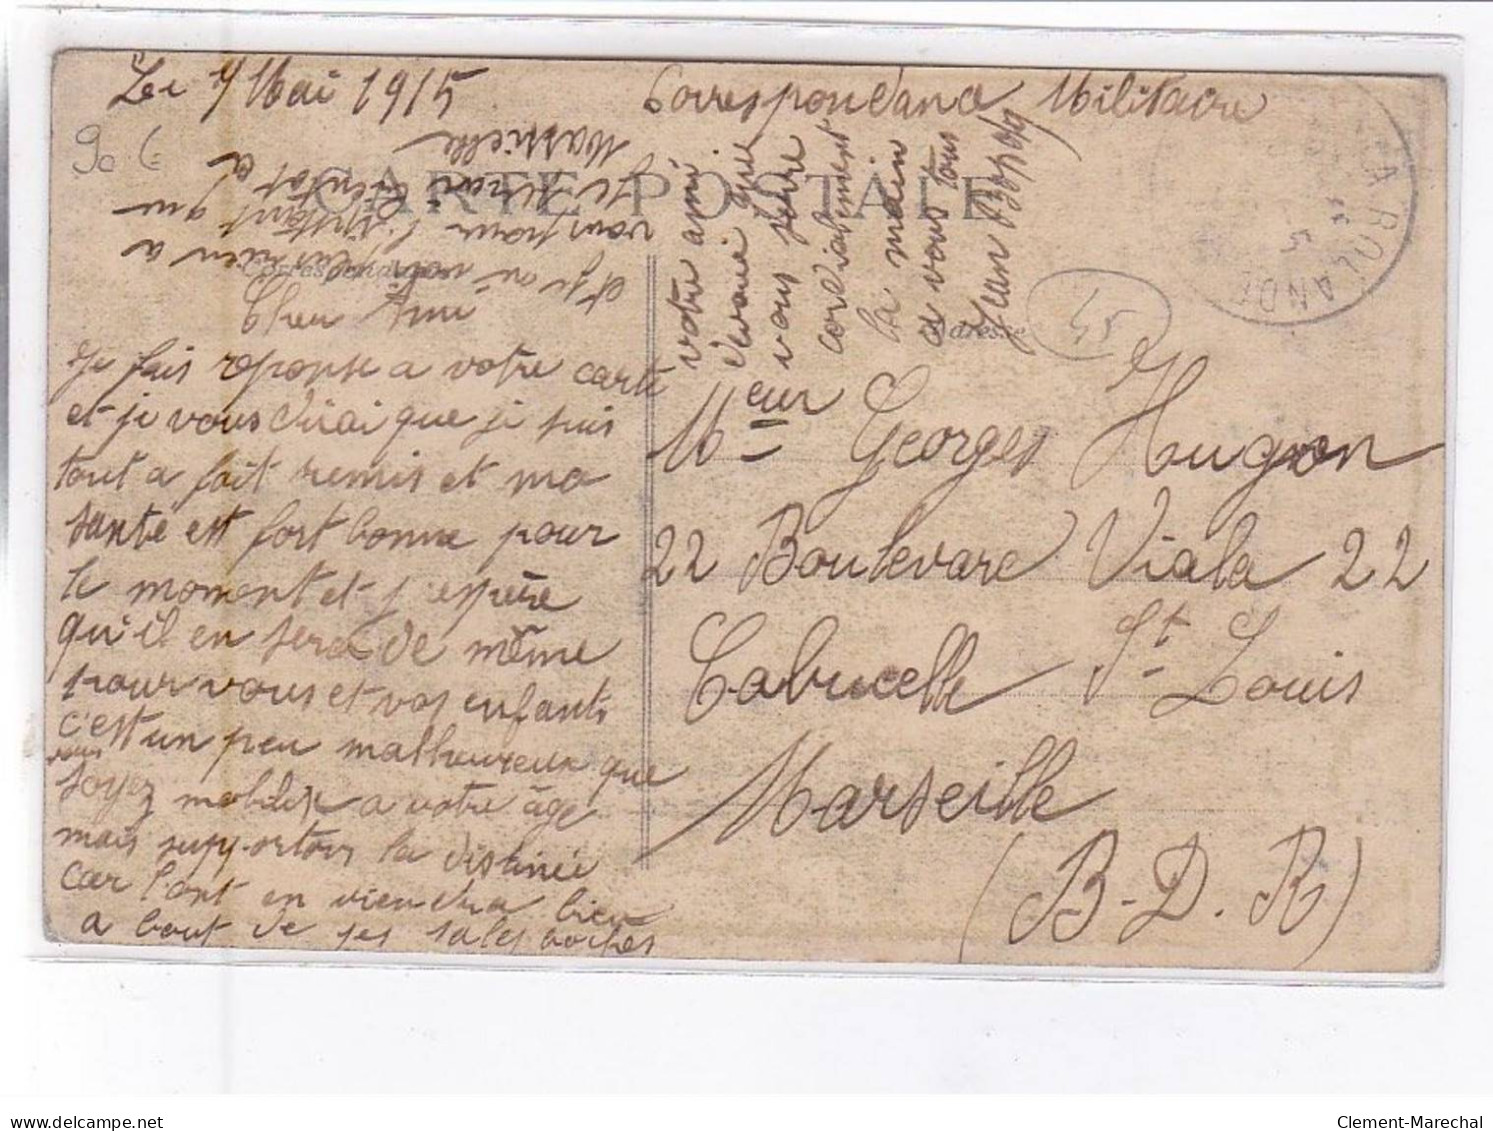 Le 7 Mai 1915
Correspondance Militaire
90 €
CARTE POSTALE
Correspondance
Adresse
LA ROLANDE
45
Cher Ami
Je fais reponse a votre carte
et je vous dirai que je suis
tout a fait remis et ma
sante est fort bonne pour
le moment et j'espère
qu'il en sera de même
pour vous et vos enfants
c'est un peu malheureux que
vous
soyez mobilisé a votre âge
mais supportons la distinée
car l'ont en viendra bien
a bout de ses sales boches
et je ne vois plus rien a
vous pour l'instant que
je serai bientot a
Marseille
votre ami
devoué que
vous serre
cordialement
la main
a vous tous
Jean
Mr eur Georges Hugon
22 Boulevard Viala 22
Cabucelle St Louis
Marseille
(B-D.R)
www.delcampe.net
Clement-Marechal